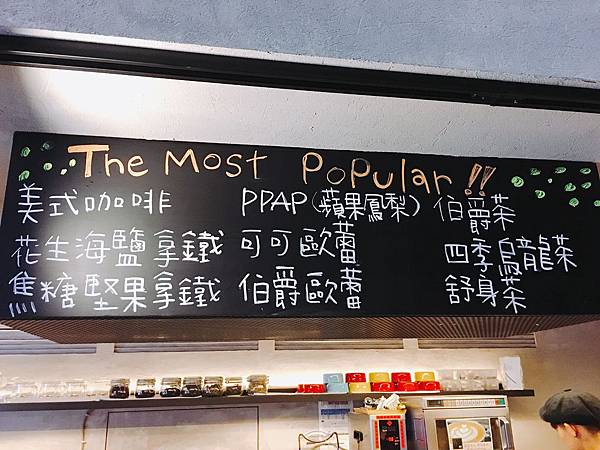 The Most Popular!!
美式咖啡 PPAP(蘋果鳳梨) 伯爵茶
花生海鹽拿鐵 可可歐蕾 四季烏龍茶
焦糖堅果拿鐵 伯爵歐蕾 舒身茶